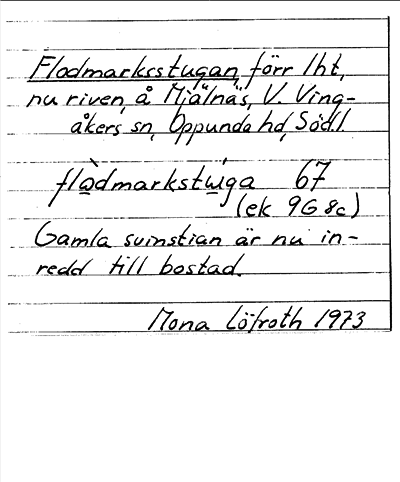 Flodmarksstugan, förr lht,
nu riven, å Mjälnäs, V. Ving-
åkers sn, Oppunda hd, Södl.
67
(ek 9G 8c)
Gamla svinstian är nu in-
redd till bostad.
Mona Löfroth 1973